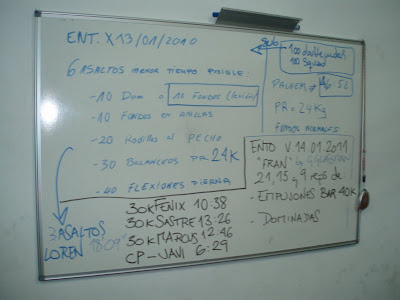 ENT. X 13/01/2010
6 ASALTOS MENOR TIEMPO POSIBLE:
-10 Dom o 10 FONDOS
-10 FONDOS EN ANILLAS
-20 Rodillas al PECHO
-30 BALANCEOS PR 24K
-40 FLEXIONES PIERNA
30K FENIX 10:38
30K SASTRE 13:26
30K MARCUS 12:46
CP-JAVI 6:29
3 ASALTOS
LOREN 18'09"
100
100 SQUAD
PR = 24Kg
FONDOS NORMALES
ENTO V. 14.01.2011
"FRAN"
21, 15 y 9 reps de
- EMPUJONES BAR 40K
- DOMINADAS